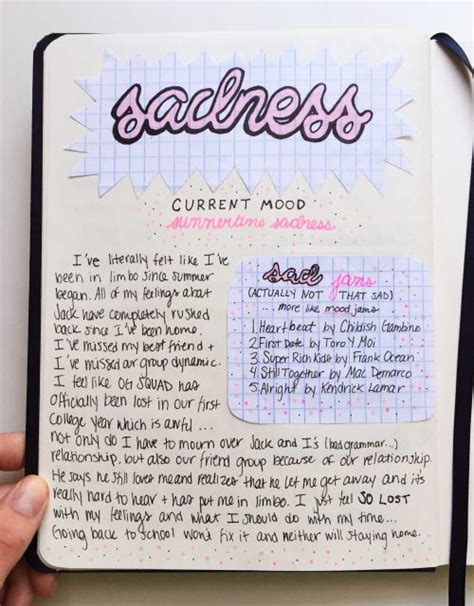 sadness
CURRENT MOOD
summertime sadness
I've literally felt like I've
been in limbo since summer
began. All of my feelings about
Jack have completely rushed
back since I've been home.
I've missed my best friend +
I've missed our group dynamic.
I feel like OG SQUAD has
officially been lost in our first
College year which is awful...
not only do I have to mourn over Jack and I's (bad grammar...)
relationship, but also our friend group because of our relationship.
He says he still loves me and realizes that he let me get away and its
really hard to hear + has put me in limbo. I just feel SO LOST
with my feelings and what I should do with my time...
Going back to school won't fix it and neither will staying home.
sad jams
(ACTUALLY NOT THAT SAD)
... more like mood jams
1. Heartbeat by Childish Gambino
2. First Date by Toro Y Moi
3. Super Rich Kids by Frank Ocean
4. Still Together by Mac Demarco
5. Alright by Kendrick Lamar